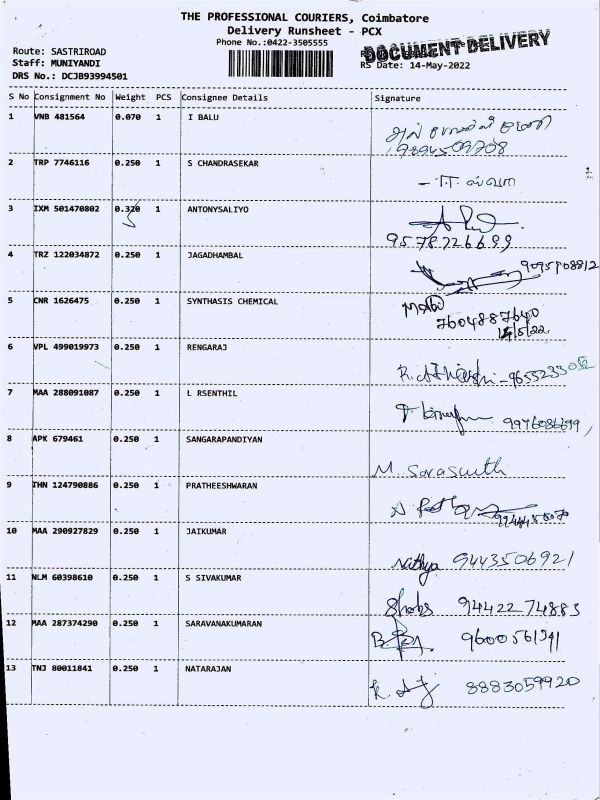 THE PROFESSIONAL COURIERS, Coimbatore
Delivery Runsheet - PCX
Phone No.:0422-3505555
DOCUMENT DELIVERY
Route: SASTRIROAD
Staff: MUNIYANDI
RS Date: 14-May-2022
DRS No.: DCJB93994501
S No Consignment No Weight PCS Consignee Details Signature
1 VNB 481564 0.070 1 I BALU
9894509708
2 TRP 7746116 0.250 1 S CHANDRASEKAR
3 IXM 501470802 0.320 1 ANTONYSALIYO
9578726699
4 TRZ 122034872 0.250 1 JAGADHAMBAL
5 CNR 1626475 0.250 1 SYNTHASIS CHEMICAL
7604887640
14/5/22
6 VPL 499019973 0.250 1 RENGARAJ
7 MAA 288091087 0.250 1 L RSENTHIL
9976086699,
8 APK 679461 0.250 1 SANGARAPANDIYAN
M. Saraswathi
9 THN 124790886 0.250 1 PRATHEESHWARAN
10 MAA 290927829 0.250 1 JAIKUMAR
Nathya 9443506921
11 NLM 60398610 0.250 1 S SIVAKUMAR
Shobs 94422 74883
12 MAA 287374290 0.250 1 SARAVANAKUMARAN
9600561341
13 TNJ 80011841 0.250 1 NATARAJAN
8883059920